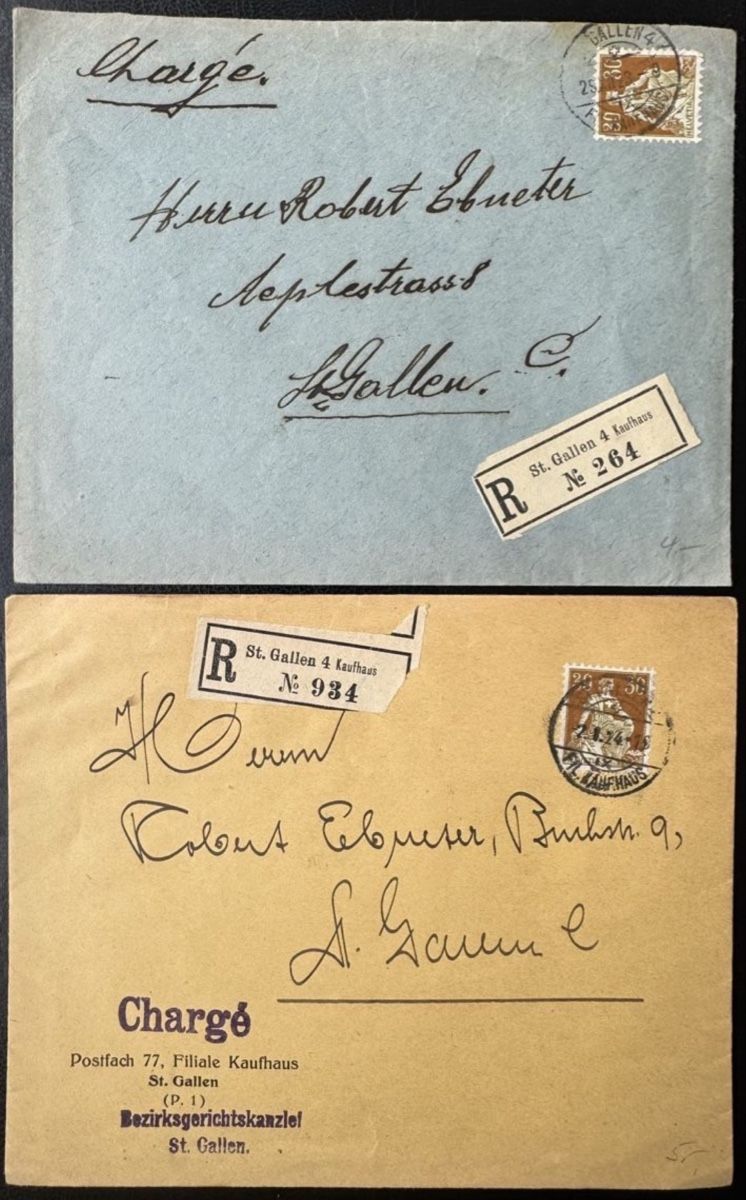 Chargé.
GALLEN 4
30 30
HELVETIA
Herrn Robert Ebneter
Aeplestrass 8
St. Gallen. C.
R St. Gallen 4 Kaufhaus
№ 264
4.-
R St. Gallen 4 Kaufhaus
№ 934
30 30
2.1.24
FIL. KAUFHAUS
Herrn
Robert Ebneter, Buchstr. 9,
St. Gallen C
Chargé
Postfach 77, Filiale Kaufhaus
St. Gallen
(P. 1)
Bezirksgerichtskanzlei
St. Gallen.
5.-